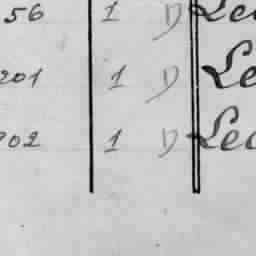 56 1 D Lec
201 1 D Le
902 1 D Lec